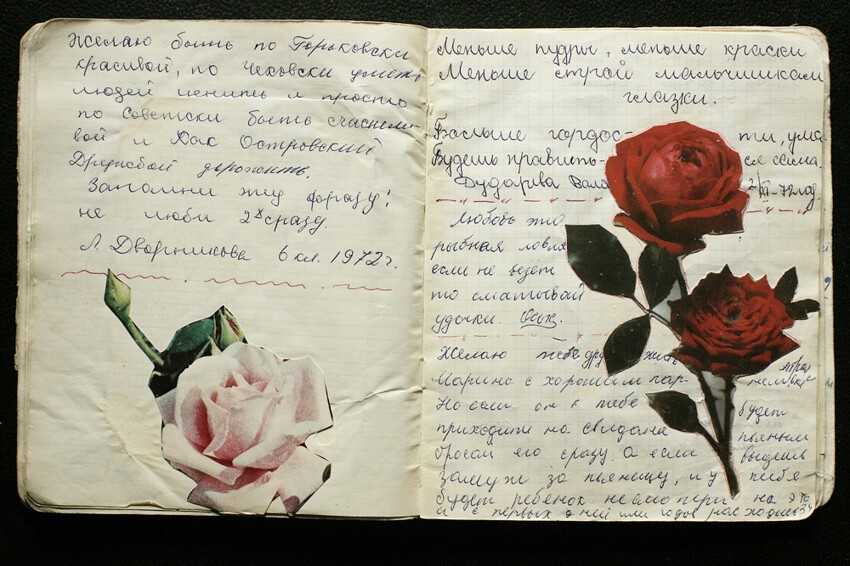 Желаю быть по Горьковски
красивой, по Чеховски уметь
людей ценить и просто
по Советски быть счастли-
вой и Как Островский
Дружбой дорожить.
Запомни эту фразу!
не люби 2х сразу.
Л Дворникова 6 кл. 1972г.
Меньше пудры, меньше краски
Меньше строй мальчишкам
глазки.
Больше гордос- ти, ума
Будешь нравить- ся сама.
1972 год
Любовь это
рыбная ловля
если не везёт
то сматывай
удочки.
Желаю тебе дру жить
Марина с хорошим пар- нем
Но если он к тебе будет
приходить на свидание пьяным
бросай его сразу. а если выдешь
замуж за пьяницу, и у тебя
будет ребёнок на это
и с первых дней или годов расходись